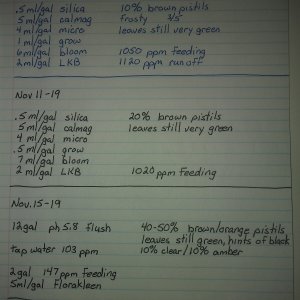 .5 ml/gal silica 10% brown pistils
5 ml/gal calmag frosty 3/5
4 ml/gal micro leaves still very green
1 ml/gal grow
6 ml/gal bloom 1050 ppm feeding
2 ml/gal LKB 1120 ppm runoff
Nov 11-19
.5 ml/gal silica 20% brown pistils
5 ml/gal calmag leaves still very green
4 ml/gal micro
.5 ml/gal grow
7 ml/gal bloom
2 ml/gal LKB 1020 ppm feeding
Nov. 15-19
12gal ph 5.8 flush 40-50% brown/orange pistils
leaves still green, hints of black
tap water 103 ppm 10% clear/10% amber
2gal 147 ppm feeding
5ml/gal Florakleen